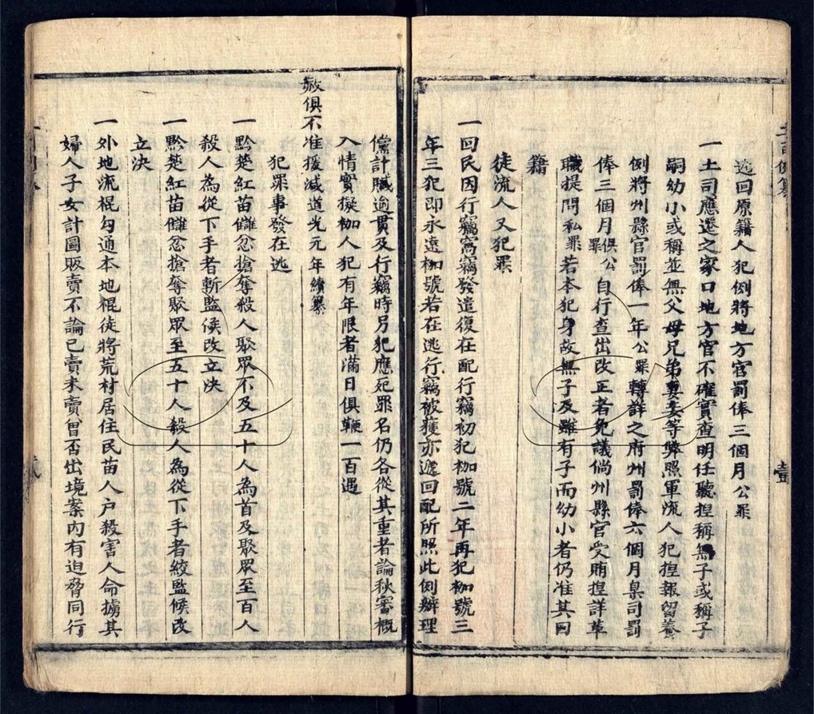 逃回原籍人犯例將地方官罰俸三個月公罪
一土司應遷之家口地方官不確實查明任聽捏稱無子或稱子
嗣幼小或稱並無父母兄弟妻妾等弊照軍流人犯捏報留養
例將州縣官罰俸一年公罪轉詳之府州罰俸六個月臬司罰
俸三個月俱公罪自行查出改正者免議倘州縣官受賄捏詳革
職提問私罪若本犯身故無子及雖有子而幼小者仍准其回
籍
徒流人又犯罪
一回民因行竊窩竊發遣復在配行竊初犯枷號二年再犯枷號三
年三犯即永遠枷號若在逃行竊被獲亦遞回配所照此例辦理
儻計贓逾貫及行竊時另犯應死罪名仍各從其重者論秋審概
入情實擬枷人犯有年限者滿日俱鞭一百遇
赦俱不准援減道光元年續纂
犯罪事發在逃
一黔楚紅苗讎忿搶奪殺人聚眾不及五十人為首及聚眾至百人
殺人為從下手者斬監候改立決
一黔楚紅苗讎忿搶奪聚眾至五十人殺人為從下手者絞監候改
立決
一外地流棍勾通本地棍徒將荒村居住民苗人戶殺害人命擄其
婦人子女計圖販賣不論已賣未賣曾否出境案內有迫脅同行